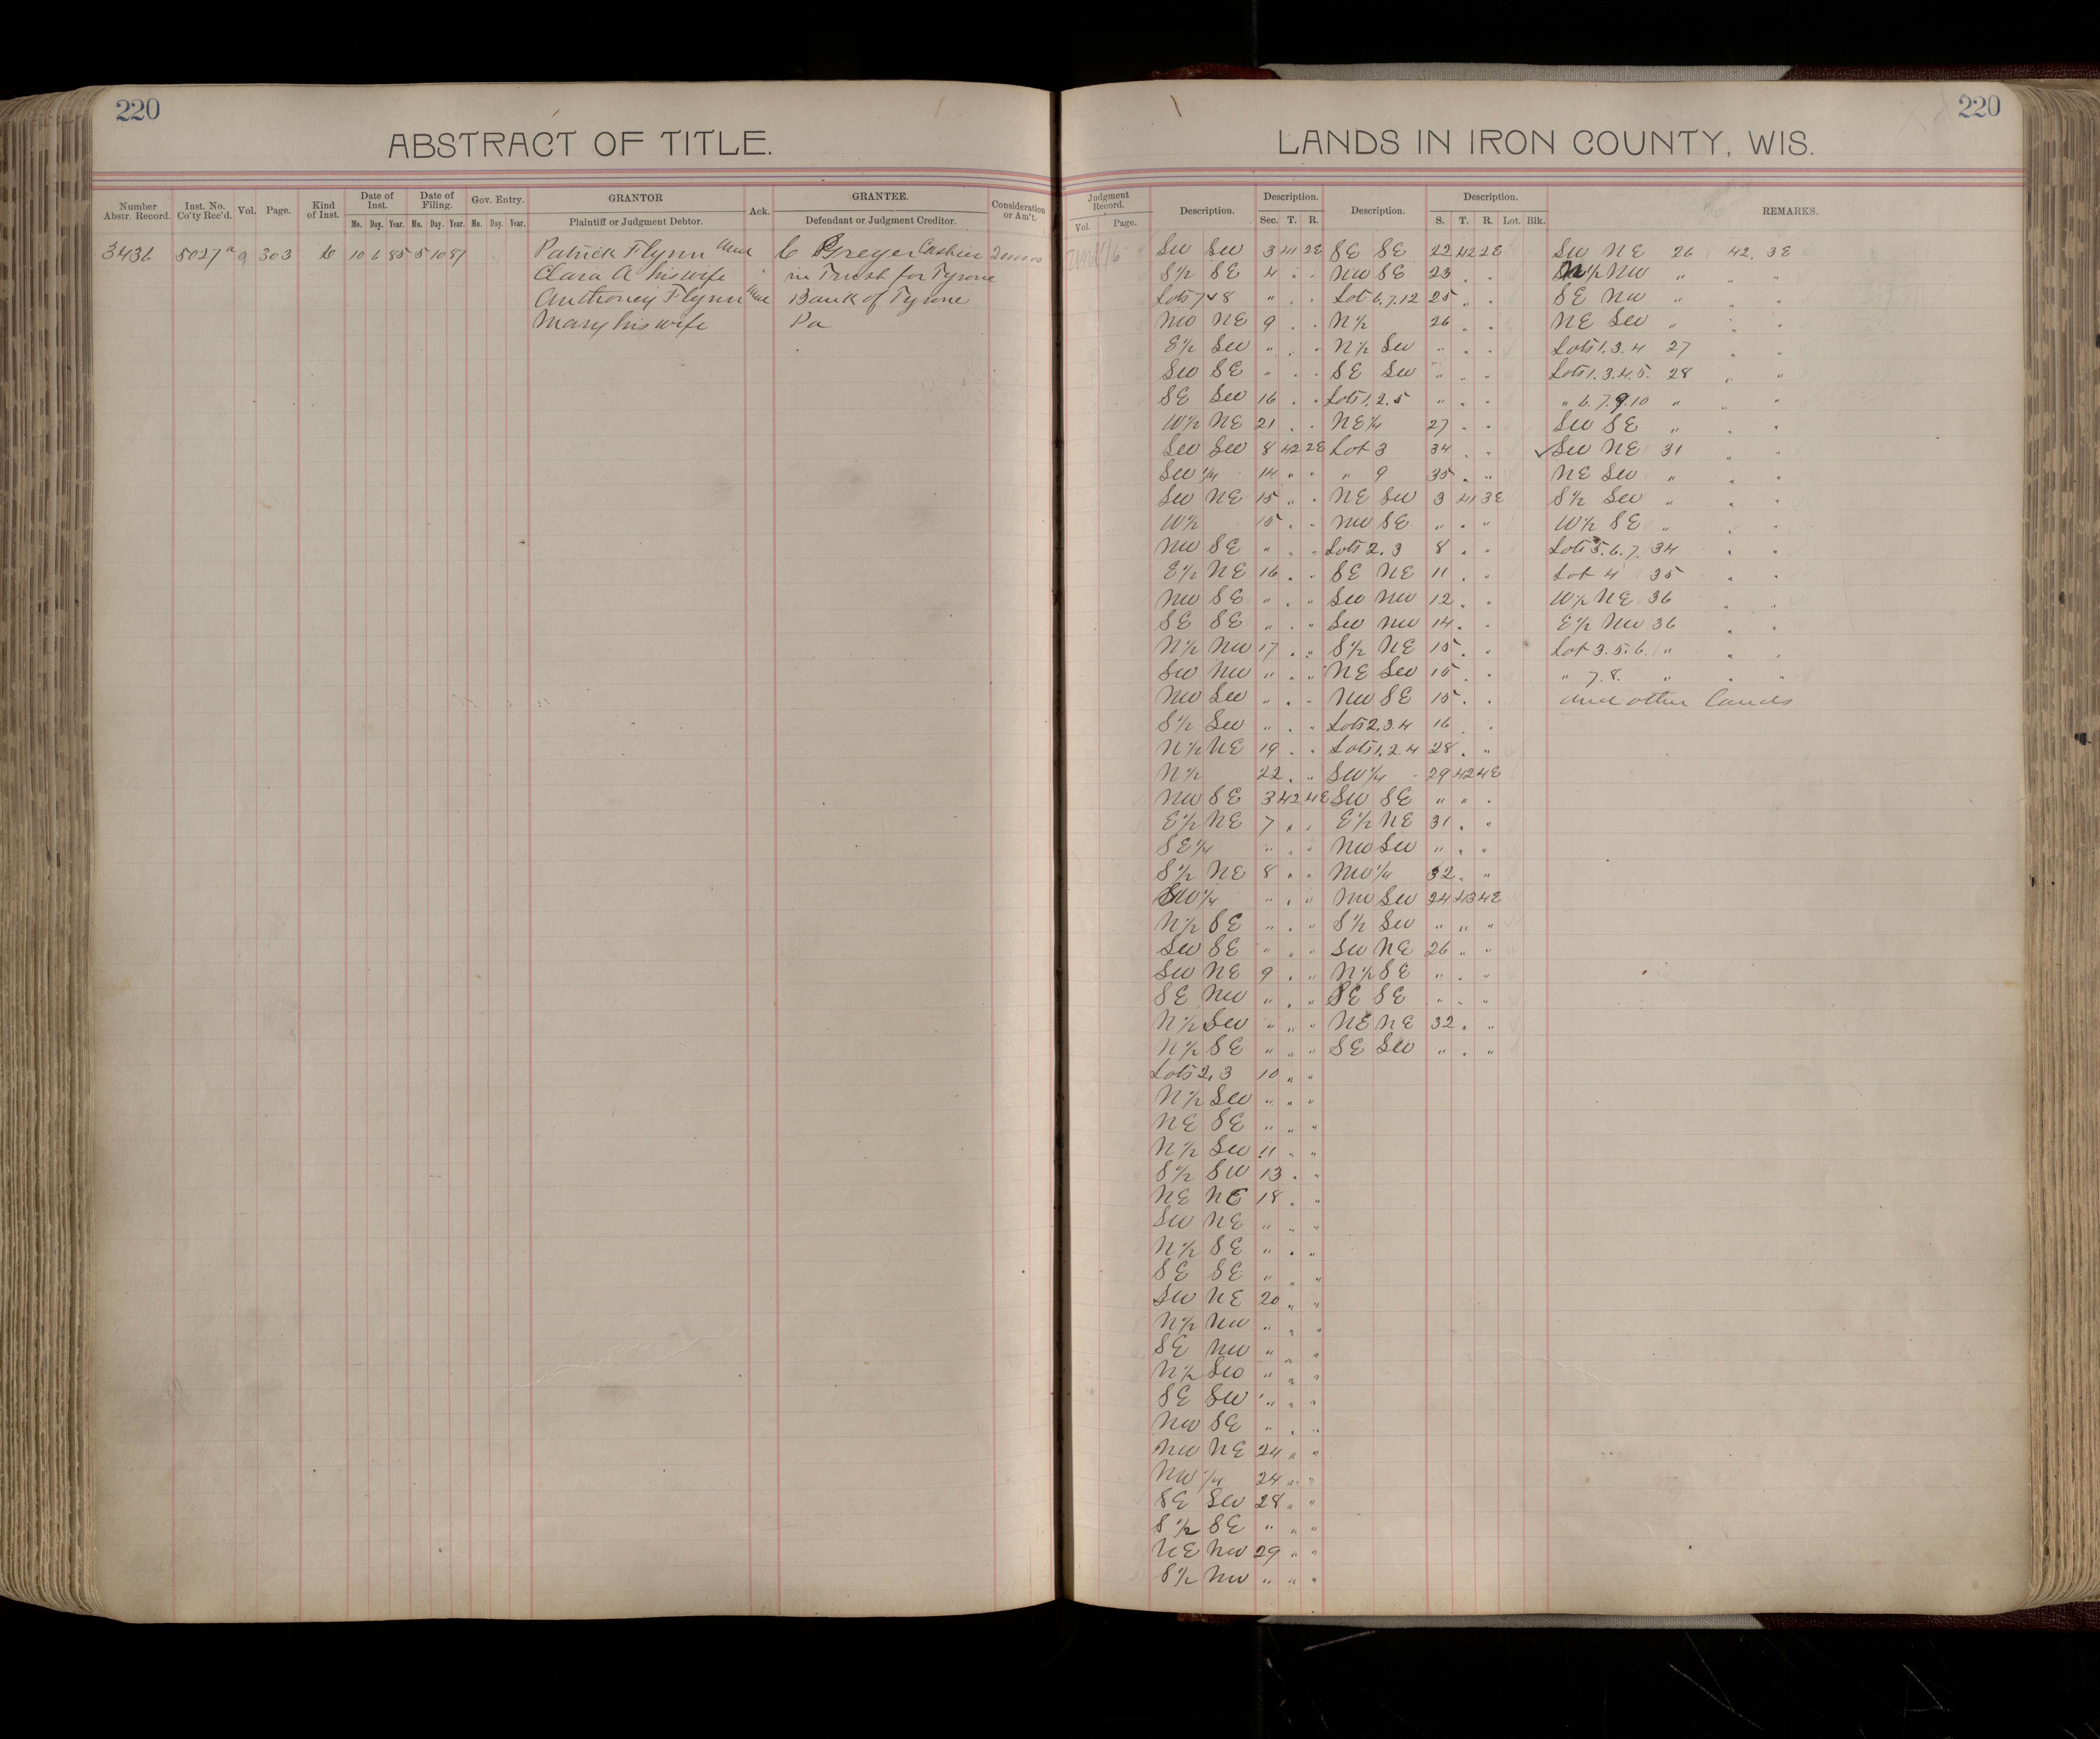 220
ABSTRACT OF TITLE.
Number Abstr. Record. Inst. No. Co'ty Rec'd. Vol. Page. Kind of Inst. Date of Inst. Date of Filing. Gov. Entry. GRANTOR Ack. GRANTEE. Consideration or Am't.
Mo. Day. Year. Mo. Day. Year. Mo. Day. Year. Plaintiff or Judgment Debtor. Defendant or Judgment Creditor.
3436 5027 a 9 303 10 6 85 5 10 87 Patrick Flynn C Greyer Cashier
Clara A his wife in Trust for Tyrone
Anthoney Flynn Bank of Tyrone
Mary his wife Pa
220
LANDS IN IRON COUNTY, WIS.
Judgment Record. Description. Description. Description. Description. REMARKS.
Vol. Page. Sec. T. R. S. T. R. Lot. Blk.
SW SW 3 41 2E SE SE 22 42 2E SW NE 26 42. 3E
S½ SE 4 . . NW SE 23 . . N½ NW " " "
Lots 7 & 8 " . . Lot 6.7.12 25 " . SE NW " " "
NW NE 9 . . N½ 26 . . NE SW " " "
E½ SW " . . N½ SW " . " Lots 1.3.4 27 " "
SW SE " . . SE SW " . " Lots 1.3.4.5. 28 " "
SE SW 16 . . Lots 1.2.5 " " . " 6.7.9.10 " " "
W½ NE 21 . . NE¼ 27 . . SW SE " " "
SW SW 8 42 2E Lot 3 34 . . ✓SW NE 31 " "
SW¼ 14 " " " 9 35 . " NE SW " " "
SW NE 15 " . NE SW 3 41 3E S½ SW " " "
W½ 15 . . NW SE " . " W½ SE " " "
NW SE " . " Lots 2.3 8 . " Lots 5.6.7. 34 " "
E½ NE 16 . . SE NE 11 . . Lot 4 35 " "
NW SE " . " SW NW 12 . . W½ NE 36 " "
SE SE " . " SW NW 14 . . E½ NW 36 " "
N½ NW 17 . " S½ NE 15 . . Lot 3.5.6. " " "
SW NW " . " NE SW 15 . . " 7.8. " " "
NW SW " . " NW SE 15 . . and other lands
S½ SW " . " Lots 2.3.4 16 . .
N½ NE 19 . . Lots 1.2.4 28 . "
N½ 22 . " SW¼ 29 42 4E
NW SE 3 42 4E SW SE " " .
E½ NE 7 " . E½ NE 31 . "
SE¼ " . " NW SW " . "
S½ NE 8 . . NW¼ 32 . "
SW¼ " . " NW SW 24 43 4E
N½ SE " . " S½ SW " " "
SW SE " " " SW NE 26 " "
SW NE 9 . " N½ SE " . "
SE NW " . " SE SE " " "
N½ SW " " " NE NE 32 . "
N½ SE " " " SE SW " . "
Lots 2, 3 10 " "
N½ SW " " "
NE SE " " "
N½ SW 11 " "
S½ SW 13 . "
NE NE 18 . "
SW NE " " "
N½ SE " . "
SE SE " " "
SW NE 20 " "
N½ NW " " "
SE NW " " "
N½ SW " " "
SE SW " " "
NW SE " . "
NW NE 24 " "
NW¼ 24 " "
SE SW 28 " "
S½ SE " " "
NE NW 29 " "
S½ NW " " "